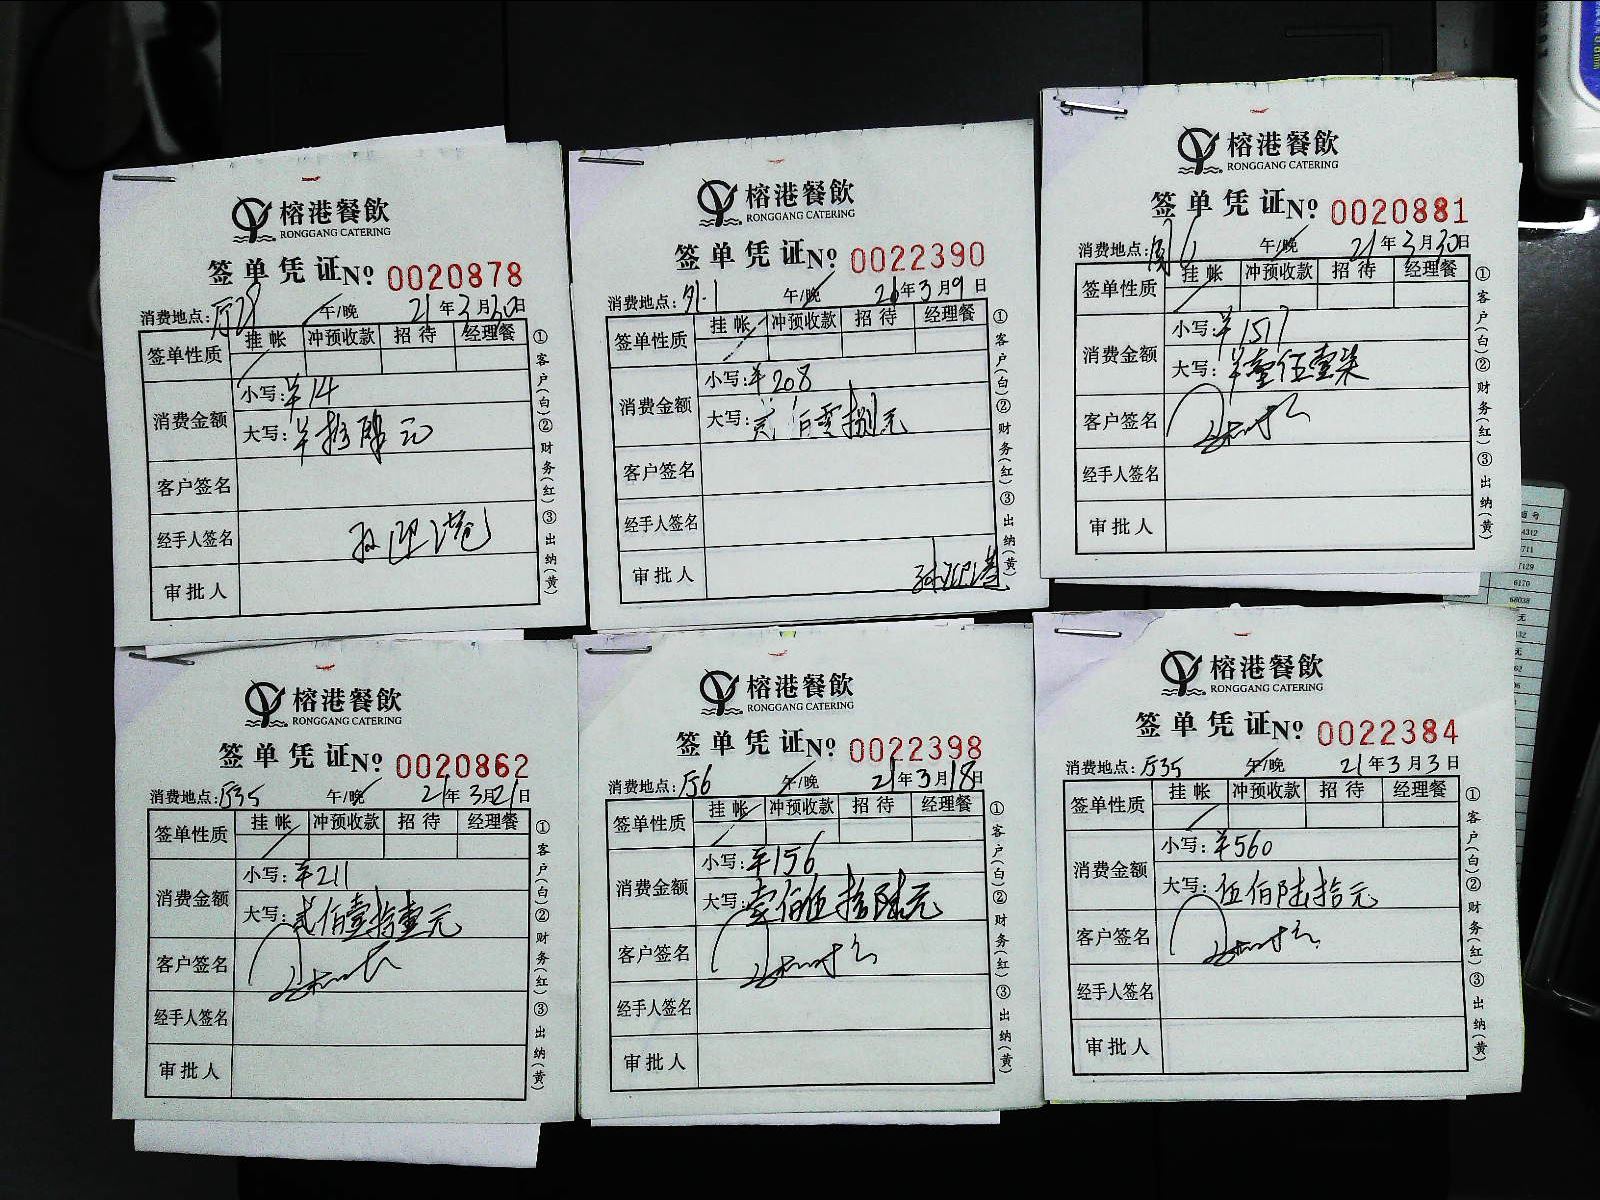 榕港餐飲
RONGGANG CATERING
签单凭证 No 0020878
消费地点: 厅29 午/晚 21年3月30日
签单性质 挂帐 冲预收款 招待 经理餐
消费金额 小写: ¥14
大写: ¥拾肆元
客户签名
经手人签名
审批人
①客户(白)②财务(红)③出纳(黄)
榕港餐飲
RONGGANG CATERING
签单凭证 No 0022390
消费地点: 午/晚 21年3月9日
签单性质 挂帐 冲预收款 招待 经理餐
消费金额 小写: ¥208
大写: 贰佰零捌元
客户签名
经手人签名
审批人
①客户(白)②财务(红)③出纳(黄)
榕港餐飲
RONGGANG CATERING
签单凭证 No 0020881
消费地点: 午/晚 21年3月30日
签单性质 挂帐 冲预收款 招待 经理餐
消费金额 小写: ¥1517
大写: ¥壹伍壹柒
客户签名
经手人签名
审批人
①客户(白)②财务(红)③出纳(黄)
榕港餐飲
RONGGANG CATERING
签单凭证 No 0020862
消费地点: 厅35 午/晚 21年3月21日
签单性质 挂帐 冲预收款 招待 经理餐
消费金额 小写: ¥211
大写: 贰佰壹拾壹元
客户签名
经手人签名
审批人
①客户(白)②财务(红)③出纳(黄)
榕港餐飲
RONGGANG CATERING
签单凭证 No 0022398
消费地点: 厅6 午/晚 21年3月18日
签单性质 挂帐 冲预收款 招待 经理餐
消费金额 小写: ¥156
大写: 壹佰伍拾陆元
客户签名
经手人签名
审批人
①客户(白)②财务(红)③出纳(黄)
榕港餐飲
RONGGANG CATERING
签单凭证 No 0022384
消费地点: 厅35 午/晚 21年3月3日
签单性质 挂帐 冲预收款 招待 经理餐
消费金额 小写: ¥560
大写: 伍佰陆拾元
客户签名
经手人签名
审批人
①客户(白)②财务(红)③出纳(黄)